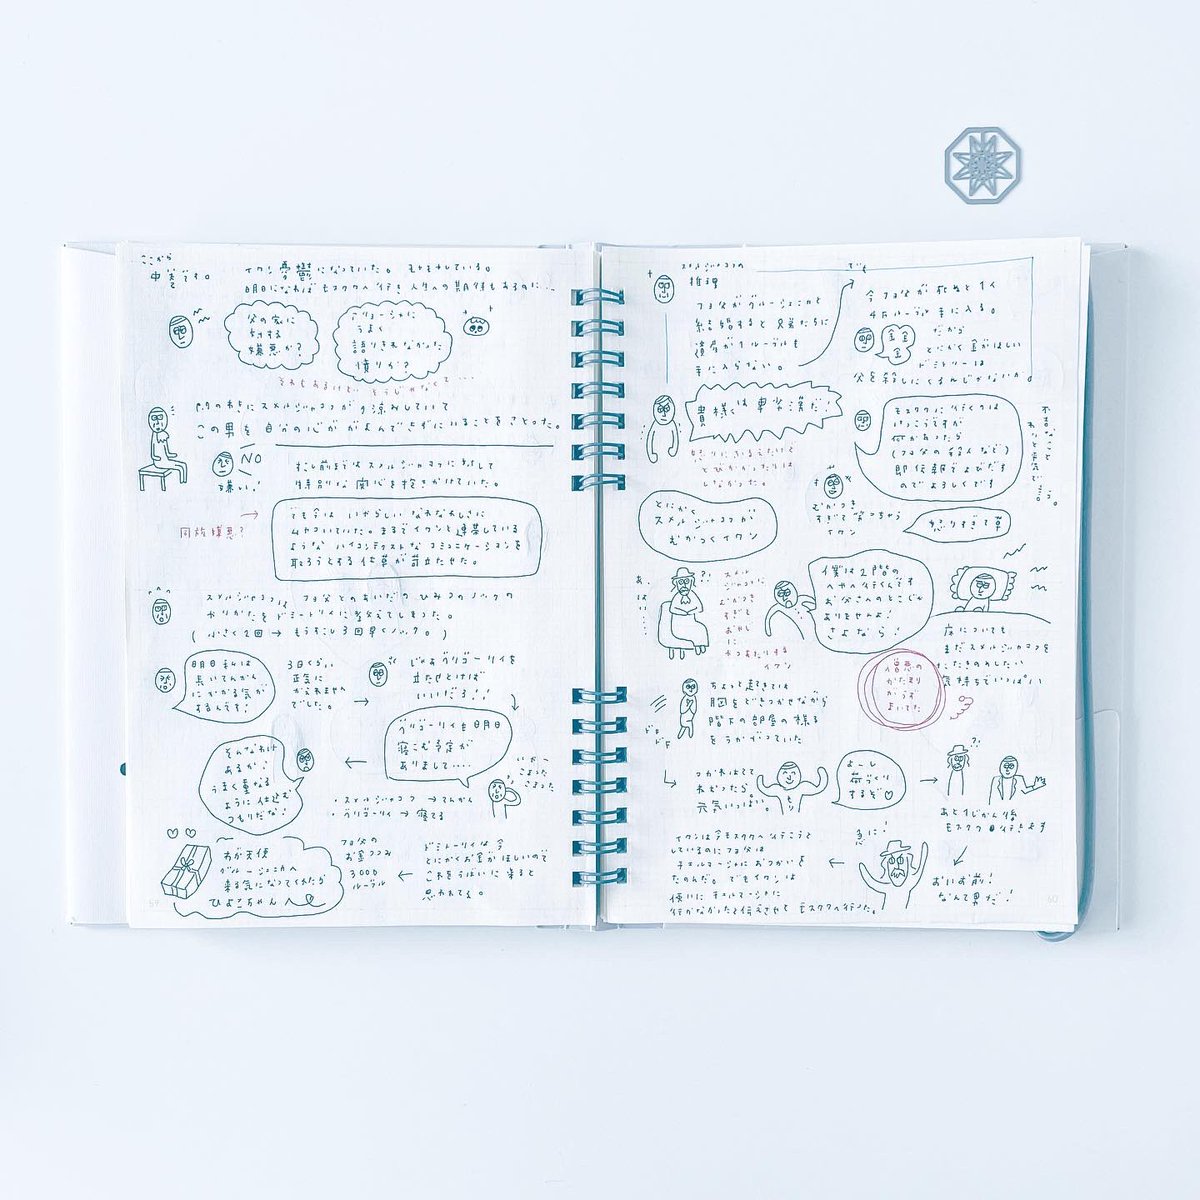 ここから
中巻です。
イワン憂鬱になっていた。もともとしている。
明日になればモスクワへ行き人生への期待もあるのに…
父の家に
対する
嫌悪か?
アリョーシャに
うまく
語りきれなかった
憤りか?
それもあるけど、そうじゃなくて…
門のわきにスメルジャコフが夕涼みしていて
この男を自分の心ががまんできずにいることをさとった。
NO
嫌い!
すこし前まではスメルジャコフに対して
特別な関心を抱きかけていた。
同族嫌悪?
でも今は いやらしい なれなれしさに
ムカついていた。まるでイワンと連帯している
ような ハイコンテクストな コミュニケーションを
取ろうとする仕草が苛立たせた。
スメルジャコフは、フョ父とのあいだの ひみつのノックの
やりかたを ドミートリイに教えてしまった。
(小さく2回 → もうすこし3回早くノック。)
明日私は
長いてんかん
にいかる気が
するんです!
3日くらい
正気に
かえれません
でした。
→
じゃあグリゴーリイを
立たせとけば
いいだろ!!
グリゴーリイも明日
寝こむ予定が
ありまして....
←
そんなわけ
あるか!
うまく重なる
ように仕込む
つもりだな!
・スメルジャコフ → てんかん
・グリゴーリイ → 寝てる
いやー
こまった
こまった
わが天使
グルーシェニカへ
来る気になってくれたら
ひよこちゃんへ
フョ父の
お金つつみ
3000
ルーブル
←
ドミートリーは今
とにかくお金がほしいので
これをうばいに来ると
思われてる。
59
スメルジャコフの
推理
フョ父がグルーシェニカと
結婚すると兄弟たちに
遺産が1ルーブルも
手に入らない。
でも
今フョ父が死ぬとすぐ
4万ルーブル手に入る。
金
金
金
だから
とにかく金がほしい
ドミトリーは
父を殺しにくるんじゃないか。
貴様は卑劣漢だ!
怒りにさるえたけど
とびかかったりは
しなかった。
モスクワに行くのは
けっこうですが
何かあったら
(フョ父の殺人など)
即伝報でよびだす
のでよろしくです
むかつき
すぎて笑っちゃう
イワン
怒りすぎて草
とにかく
スメルジャコフが
むかつくイワン
あ、
?!
スメル
ジャコフに
むかつき
すぎて
おやじ
に
やつあたりする
イワン
僕は2階の
へやへ行くんです
お父さんのとこじゃ
ありませんよ!
さよなら!
床についても
まだスメルジャコフを
たたきのめしたい
気持ちでいっぱい
憎悪の
かたまり
が
うず
まいてた
ちょっと起きては
胸をどきつかせながら
階下の部屋の様子
をうかがっていた
ドキ
ドキ
つかれはてて
ねむったら
元気いっぱい。
よーし
荷づくり
するぞ♡
→
あと1じかん後
モスクワ行きます
イワンは今モスクワへ行こうと
しているのにフョ父は
チェルマーシャにおつかいを
たのんだ。でもイワンは
使いにチェルマーシャに
行かなかったと伝えさせて モスクワへ行った。
←
急に!
おいお前!
なんて男だ!
60